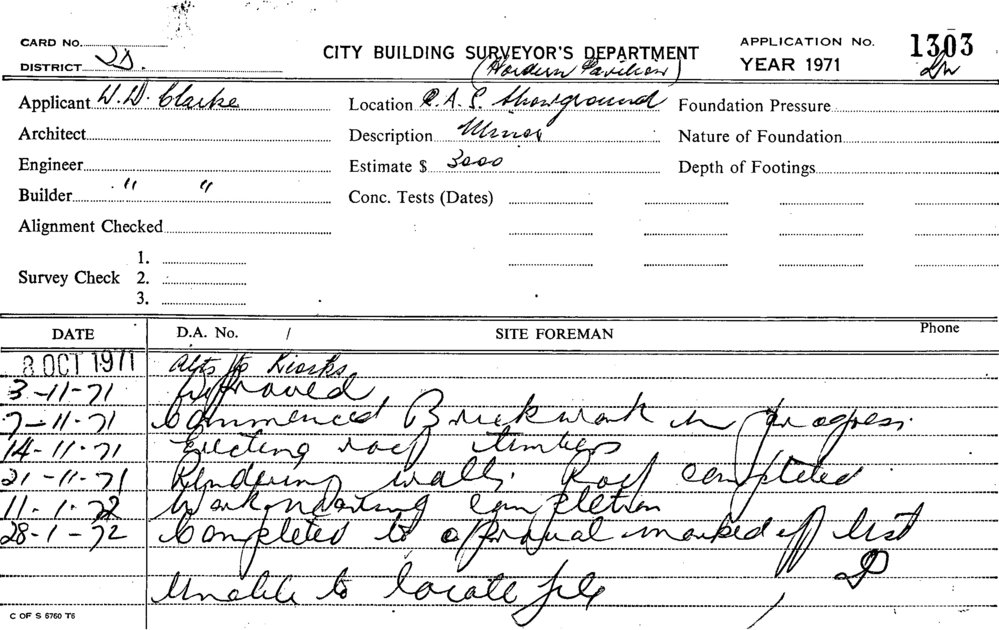 CARD No.
CITY BUILDING SURVEYOR'S DEPARTMENT
APPLICATION No. 1303
DISTRICT
(Hordern Pavilion)
YEAR 1971
Applicant W. D. Clarke
Location R.A.S. Showground
Foundation Pressure
Architect
Description Minor
Nature of Foundation
Engineer
Estimate $ 3000
Depth of Footings
Builder " "
Conc. Tests (Dates)
Alignment Checked
Survey Check
1.
2.
3.
DATE
D.A. No. /
SITE FOREMAN
Phone
8 OCT 1971 Alts to Kiosks
3-11-71 Approved
7-11-71 Commenced Brickwork in progress.
14-11-71 Erecting roof timbers
21-11-71 Rendering walls. Roof completed
11-1-72 Work nearing completion
28-1-72 Completed to approval marked off list
Unable to locate file
C OF S 6760 T6